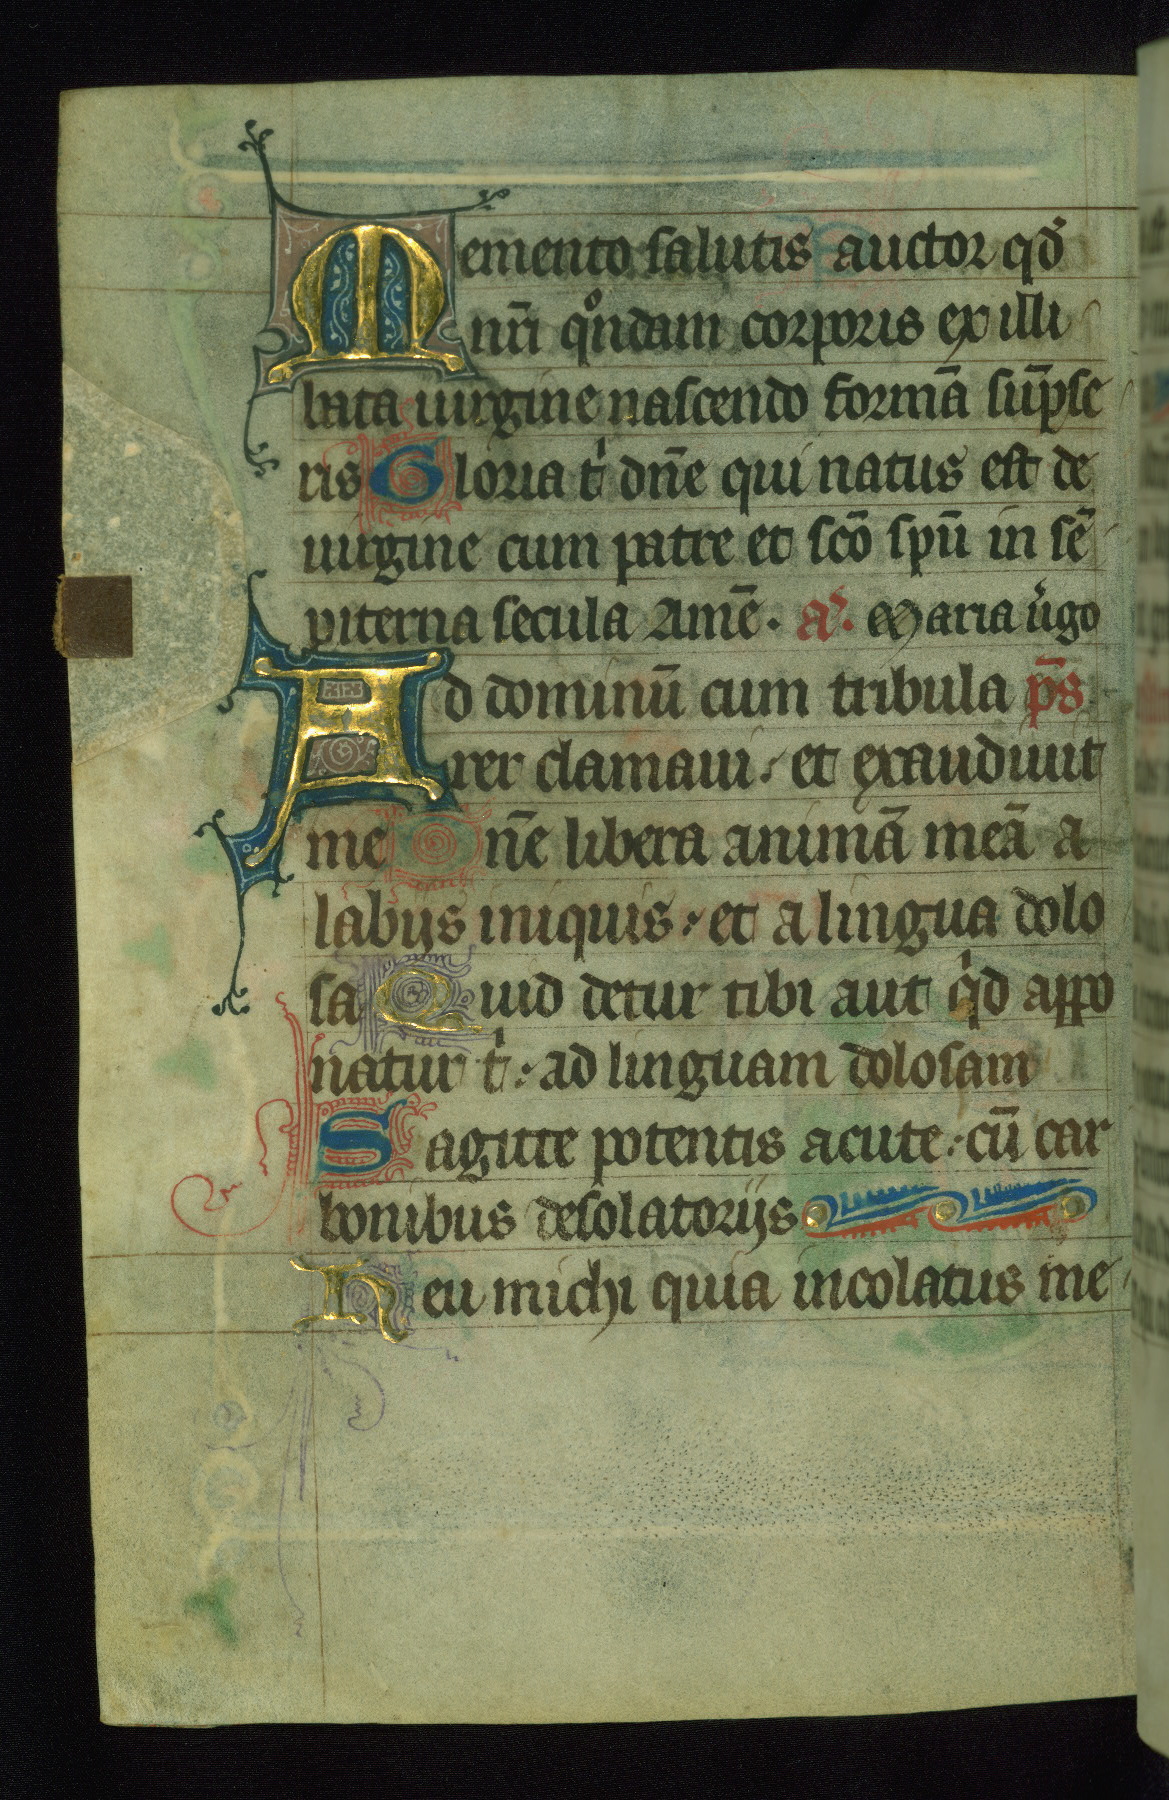 Memento salutis auctor qđ
nr̄i qͦndam corporis ex illi
bata uirgine nascendo formā sūpse
ris Gloria tͥ dn̄e qui natus est de
uirgine cum patre et sc̄o sp̄u in sē
piterna secula Amē. aͣ. Maria uͥgo
Ad dominū cum tribula p̄s
rer clamaui: et exaudiuit
me Dn̄e libera animā meā a
labijs iniquis: et a lingua dolo
sa Quid detur tibi aut qͥd appo
natur tͥ: ad linguam dolosam
Sagitte potentis acute: cū car
bonibus desolatorijs
Heu michi quia incolatus me